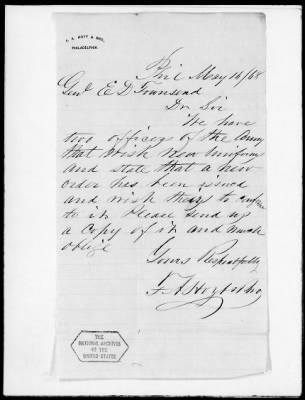 F. A. HOYT & BRO.
PHILADELPHIA.
Phil May 16/68
Genl E D Townsend
Dr Sir
We have
two officers of the Army
that wish new Uniforms
and state that a new
order has been issued
and wish theirs to conform
to it Please send us
a copy of it and much
oblige
Yours Respectfully
F. A. Hoyt & Bro
THE
NATIONAL ARCHIVES
OF THE
UNITED STATES